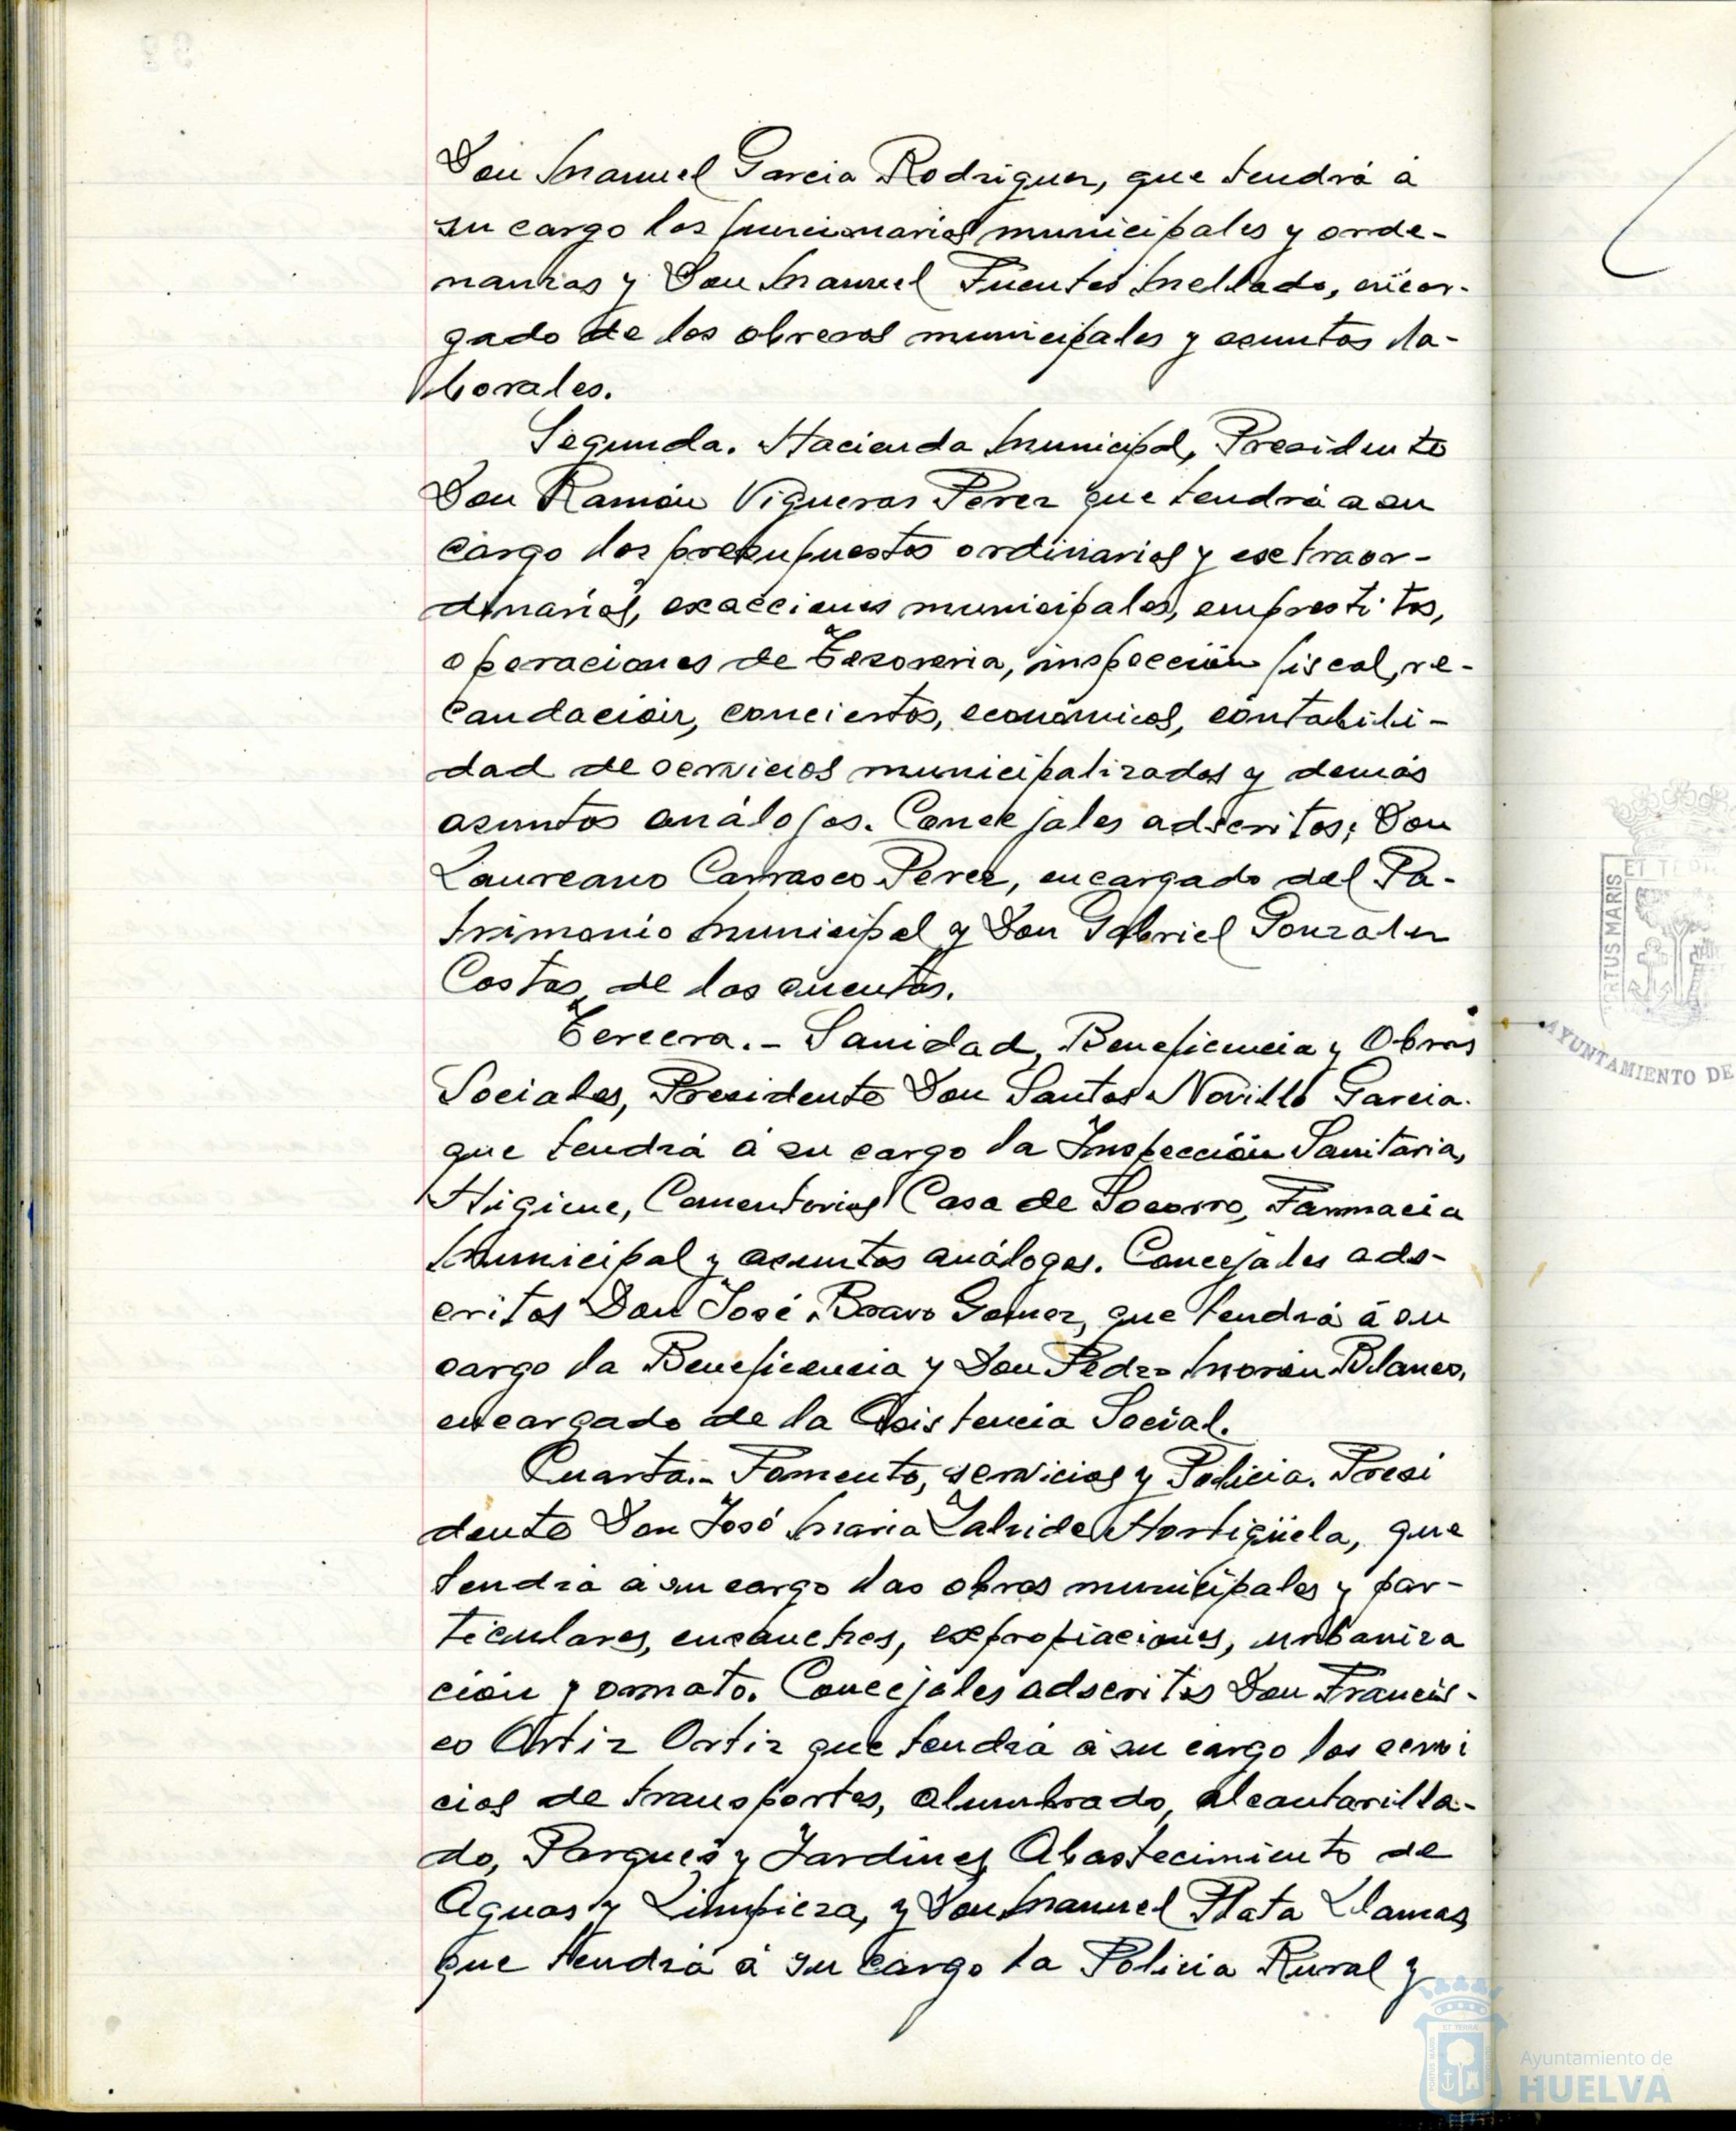 Don Manuel Garcia Rodriguez, que tendrá á
su cargo los funcionarios municipales y orde-
nanzas y Don Manuel Fuentes Mellado, encar-
gado de los obreros municipales y asuntos la-
borales.
Segunda. Hacienda Municipal, Presidente
Don Ramón Vigueras Perez que tendrá a su
cargo los presupuestos ordinarios y extraor-
dinarios, exacciones municipales, emprestitos,
operaciones de Tesoreria, inspección fiscal, re-
caudación, conciertos, económicos, contabili-
dad de servicios municipalizados y demás
asuntos análogos. Concejales adscritos; Don
Laureano Carrasco Perez, encargado del Pa-
trimonio Municipal y Don Gabriel Gonzalez
Costas, de las cuentas.
Tercera.- Sanidad, Beneficencia y Obras
Sociales, Presidente Don Santos Novillo Garcia.
que tendrá á su cargo la Inspección Sanitaria,
Higiene, Cementerios Casa de Socorro, Farmacia
Municipal y asuntos análogos. Concejales ads-
critos Don José Bravo Gomez, que tendrá á su
cargo la Beneficencia y Don Pedro Morón Blanco,
encargado de la Asistencia Social.
Cuarta.- Fomento, servicios y Policia. Presi
dente Don José Maria Hortigüela, que
tendrá a su cargo las obras municipales y par-
ticulares, ensanches, expropiaciones, urbaniza
ción y ornato. Concejales adscritos Don Francis-
co Ortiz Ortiz que tendrá á su cargo los servi
cios de transportes, alumbrado, alcantarilla-
do, Parques y Jardines, Abastecimiento de
Aguas y Limpieza, y Don Manuel Plata Llamas,
que tendrá á su cargo la Policia Rural y
ET TERR
PORTUS MARIS
AYUNTAMIENTO DE
Ayuntamiento de
HUELVA